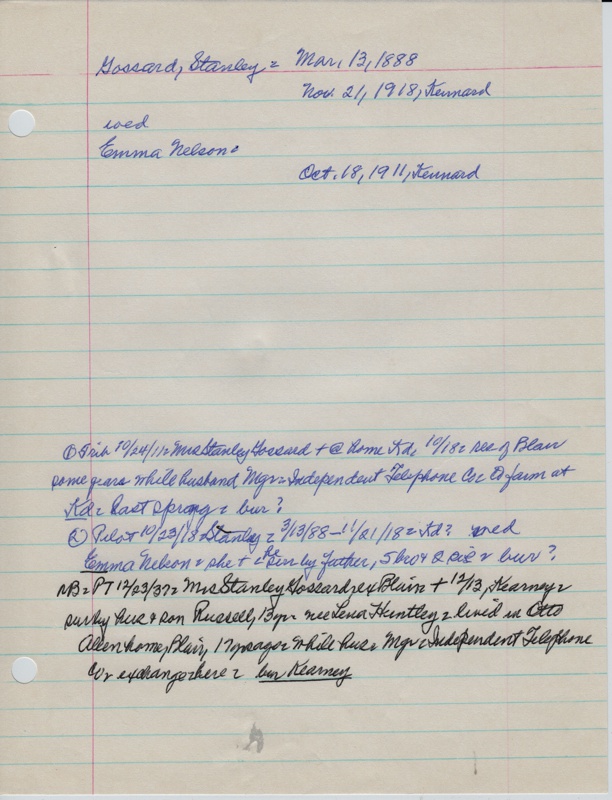 Gossard, Stanley = Mar. 13, 1888
Nov. 21, 1918, Kennard
wed
Emma Nelson =
Oct. 18, 1911, Kennard
① Trib 10/24/11 = Mrs Stanley Gossard + @ home Kd, 10/18 = res of Blair
some years while husband Mgr = Independent Telephone Co = to farm at
Kd = last spring = bur?
② Pilot 10/23/18 = Stanley = 3/13/88 - 11/21/18 = Kd? wed
Emma Nelson = she + = he surv by father, 5 bro & 2 sis = bur?
NB = PT 12/23/37 = Mrs Stanley Gossard, ex Blair + 12/13, Kearney =
surv by hus & son Russell, 13 yr = nee Lena Huntley = lived in Otto
Allen home, Blair, 17 yrs ago = while hus = Mgr = Independent Telephone
Co = exchange here = bur Kearney